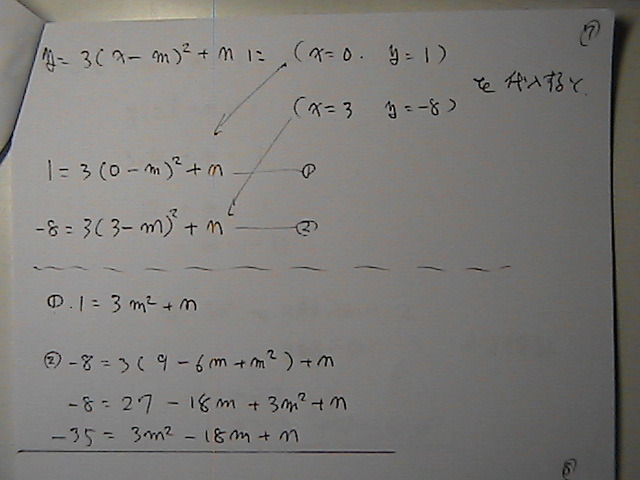 ⑦
y = 3(x - m)² + n に (x = 0. y = 1)
(x = 3 y = -8) を代入すると.
1 = 3(0 - m)² + n ― ①
-8 = 3(3 - m)² + n ― ②
①. 1 = 3m² + n
② -8 = 3(9 - 6m + m²) + n
-8 = 27 - 18m + 3m² + n
-35 = 3m² - 18m + n